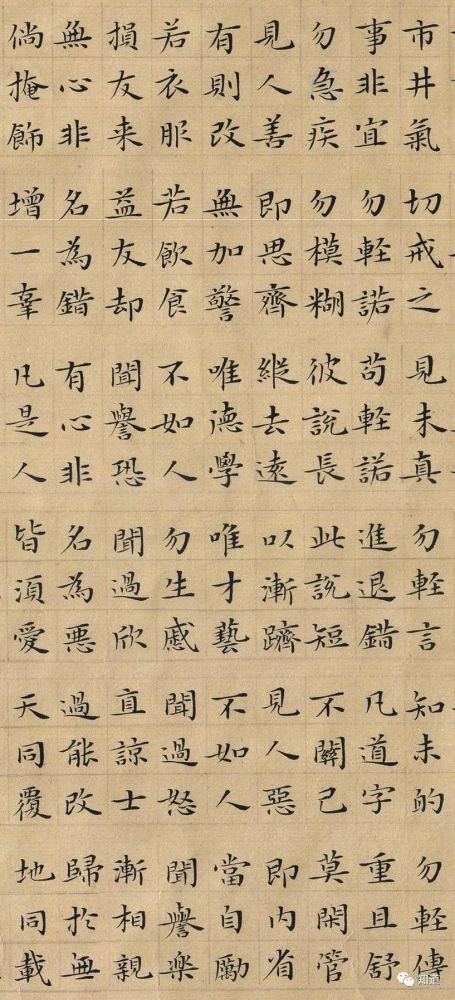 市井氣切戒之見未真勿輕言知未的勿輕傳
事非宜勿軽諾苟軽諾進退錯凡道字重且舒
勿急疾勿模糊彼說長此說短不關己莫閑管
見人善即思齊縱去遠以漸躋見人惡即內省
有則改無加警唯德學唯才藝不如人當自勵
若衣服若飲食不如人勿生慼聞過怒聞譽楽
損友来益友却聞譽恐聞過欣直諒士漸相親
無心非名為錯有心非名為悪過能改歸於無
倘掩飾增一辜凡是人皆須愛天同覆地同載